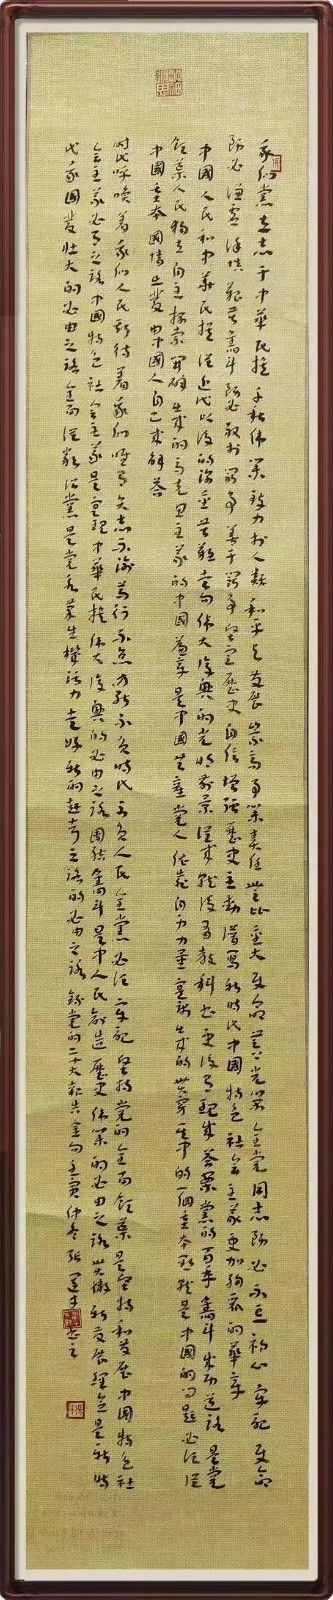 我们党立志于中華民族千秋伟業致力于人類和平与发展崇高事業責任无比重大使命无上光榮全党同志務必不忘初心牢記使命
務必谦虚谨慎艱苦奮斗務必敢于鬥争善于鬥争坚定歷史自信增强歷史主動谱寫新時代中國特色社会主义更加绚丽的華章
中國人民和中華民族從近代以後的深重苦難走向伟大復興的光明前景從来就没有教科书更没有現成答案党的百年奮斗成功道路是党
領導人民独立自主探索開辟出来的马克思主义的中國篇章是中國共産党人依靠自身力量實踐出来的贯穿其中的一個基本點就是中國的问題必须從
中國基本國情出发由中國人自己来解答
時代呼唤着我们人民期待着我们唯有矢志不渝笃行不怠方能不负時代不负人民全党必须牢記坚持党的全面領導是坚持和发展中國特色社
会主义必由之路中國特色社会主义是實現中華民族伟大復興的必由之路团结奮斗是中國人民創造歷史伟業的必由之路贯徹新发展理念是新時
代我國发展壮大的必由之路全面從嚴治党是党永葆生機活力走好新的赶考之路的必由之路 録党的二十大報告金句壬寅仲冬張